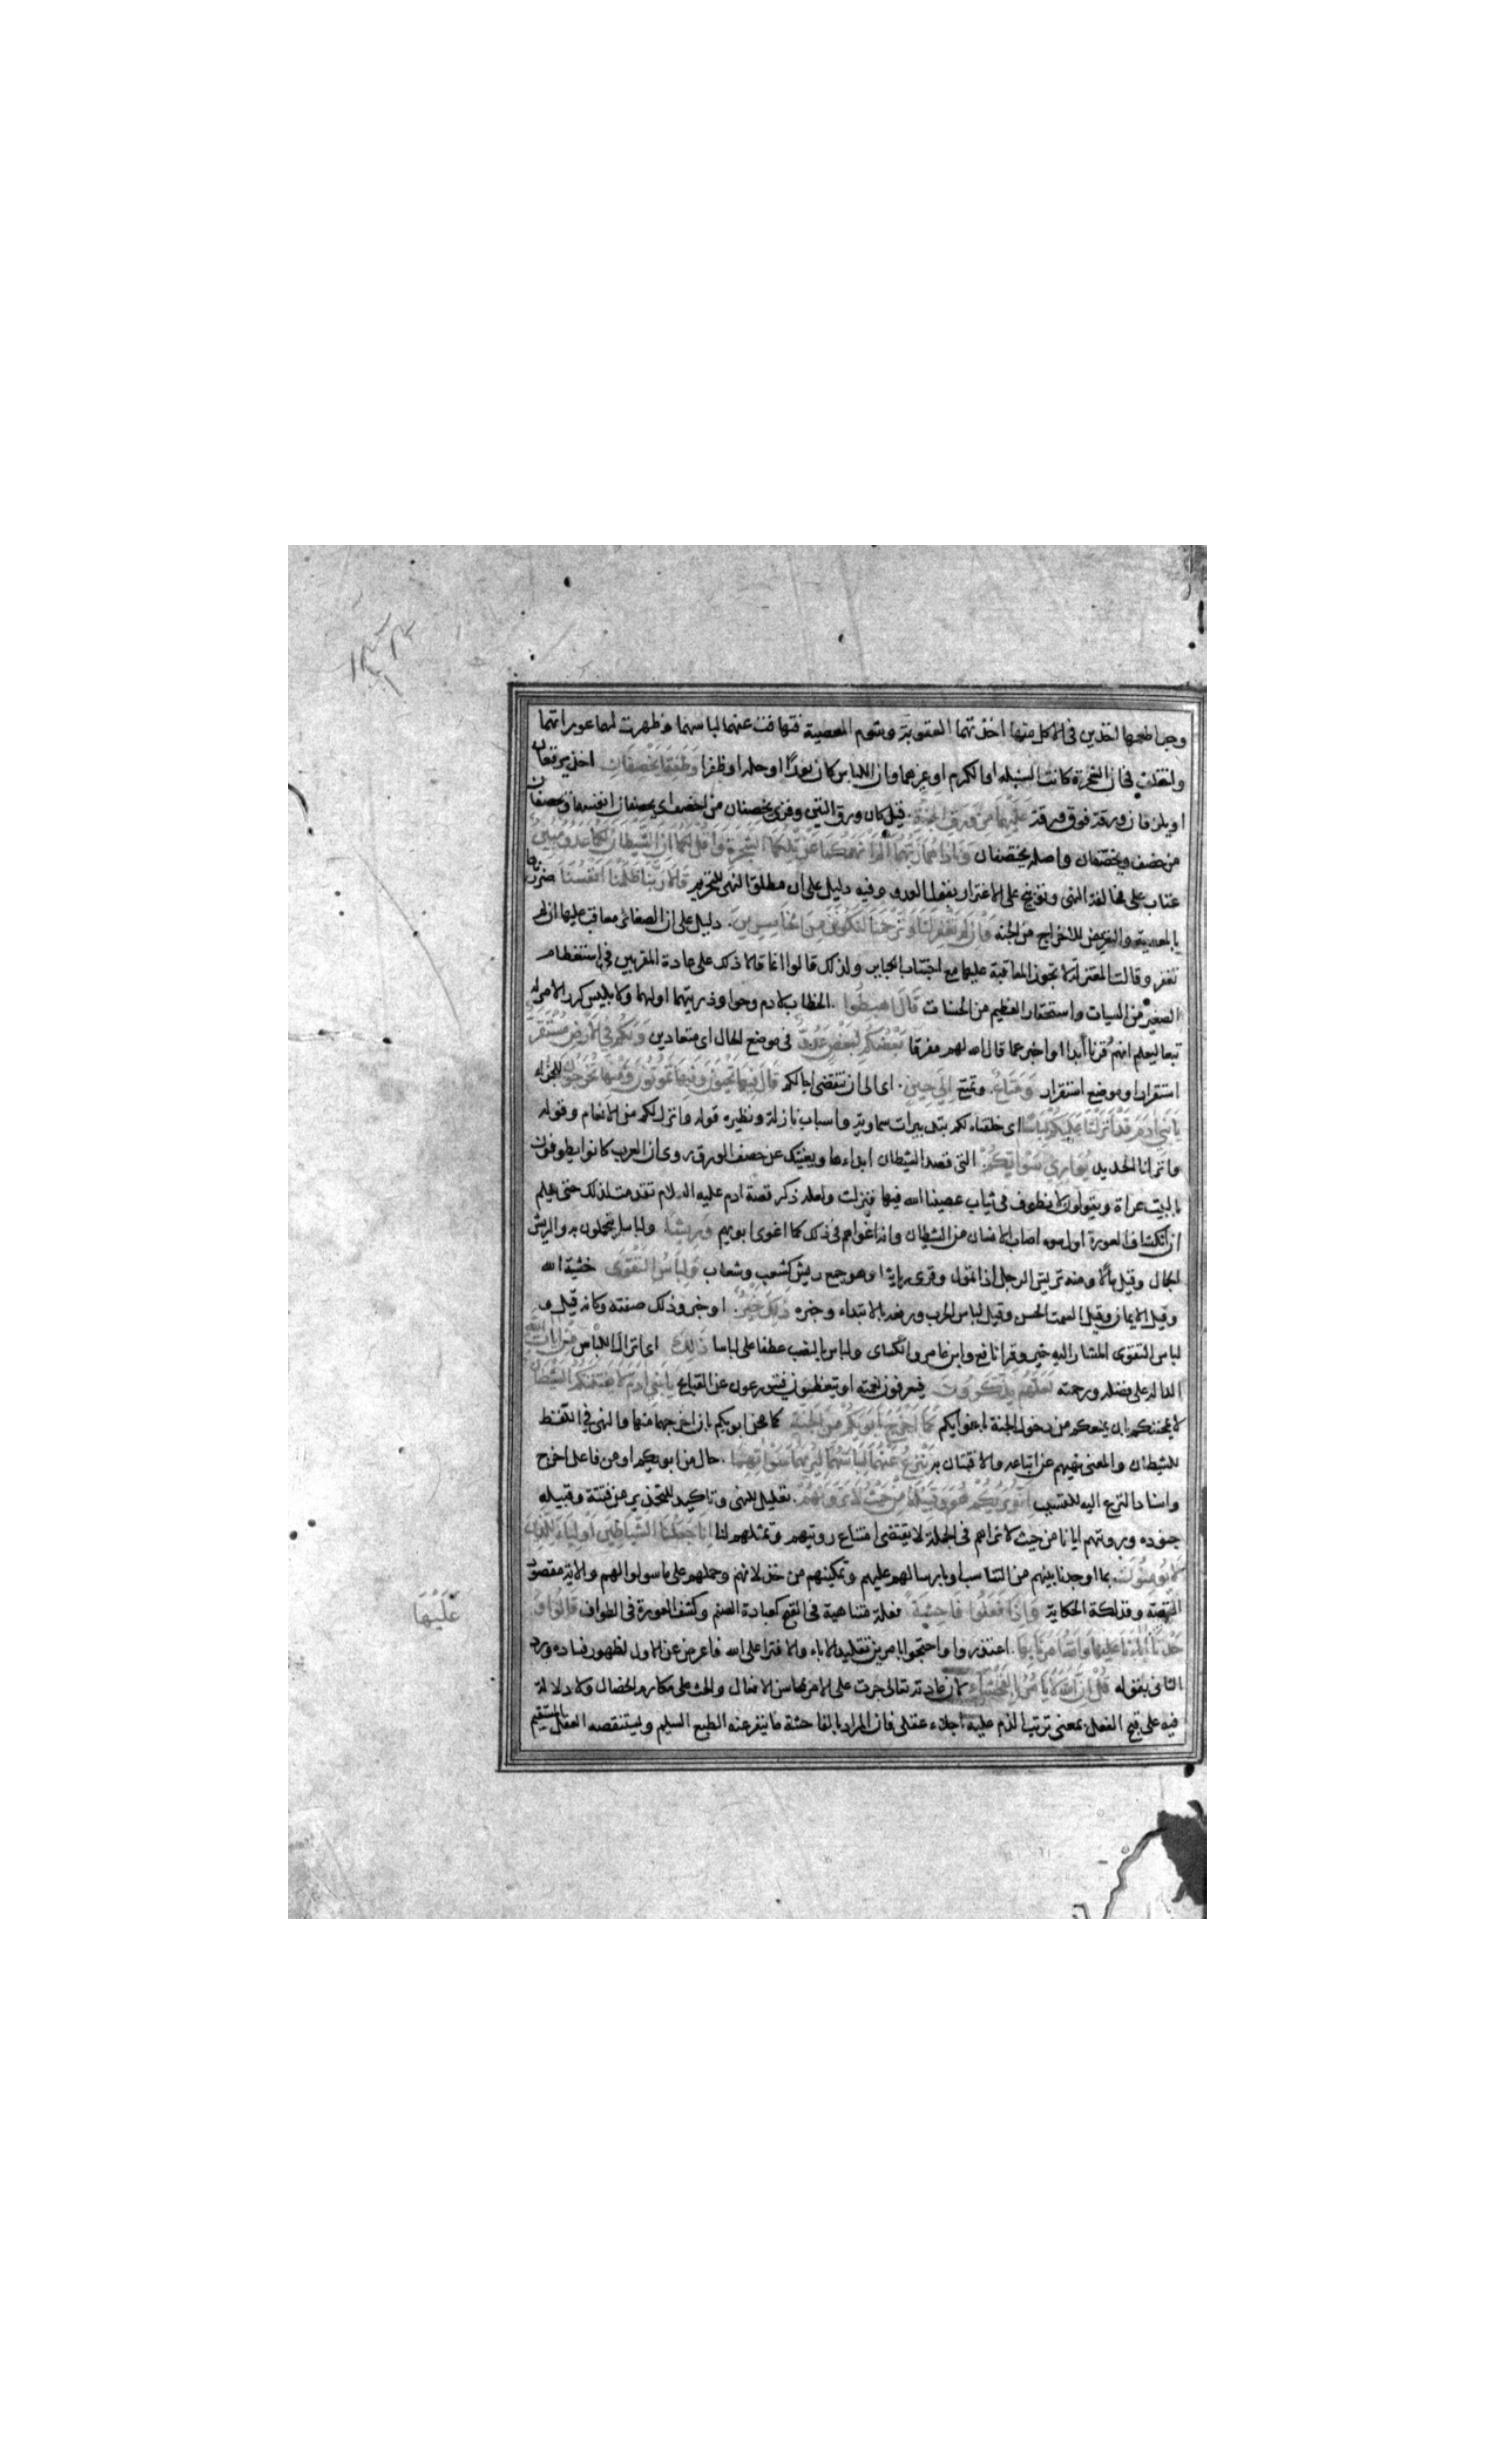 وجدا طعمها اخذين في الاكل منها اخذتهما العقوبة وشوم المعصية فتهافت عنهما لباسهما وظهرت لهما عوراتهما
واختلف في ان الشجرة كانت السنبله او الكرم او غيرهما وان اللباس كان نورا او حلة او ظفرا وَطَفِقَا يَخْصِفَانِ اخذ يرقعان
او يلزقان ورقة فوق ورقة عَلَيْهِمَا مِنْ وَرَقِ الْجَنَّةِ قيل كان ورق التين وقرئ يخصفان من اخصف اي يخصفان انفسهما ويخصفان
من خصف ويخصفان واصله يختصفان وَنَادَاهُمَا رَبُّهُمَا أَلَمْ أَنْهَكُمَا عَنْ تِلْكُمَا الشَّجَرَةِ وَأَقُلْ لَكُمَا إِنَّ الشَّيْطَانَ لَكُمَا عَدُوٌّ مُبِينٌ
عتاب على مخالفة النهي وتوبيخ على الاغترار بقول العدو وفيه دليل على ان مطلق النهي للتحريم قَالَا رَبَّنَا ظَلَمْنَا أَنْفُسَنَا ضررناها
بالمعصية والتعريض للاخراج من الجنة وَإِنْ لَمْ تَغْفِرْ لَنَا وَتَرْحَمْنَا لَنَكُونَنَّ مِنَ الْخَاسِرِينَ دليل على ان الصغائر معاقب عليها ان لم
تغفر وقالت المعتزلة لا تجوز المعاقبة عليها مع اجتناب الكباير ولذلك قالوا انما قالا ذلك على عادة المقربين في استعظام
الصغير من السيات واستحقار العظيم من الحسنات قَالَ اهْبِطُوا الخطاب لادم وحوا وذريتهما او لهما ولابليس كرر الامر له
تبعا ليعلم انهم قرنا ابدا او اخبر عما قال الله لهم مفرقا بَعْضُكُمْ لِبَعْضٍ عَدُوٌّ في موضع الحال اي متعادين وَلَكُمْ فِي الْأَرْضِ مُسْتَقَرٌّ
استقرار او موضع استقرار وَمَتَاعٌ وتمتع إِلَى حِينٍ اي الى ان تنقضي اجالكم قَالَ فِيهَا تَحْيَوْنَ وَفِيهَا تَمُوتُونَ وَمِنْهَا تُخْرَجُونَ للجزاء
يَا بَنِي آدَمَ قَدْ أَنْزَلْنَا عَلَيْكُمْ لِبَاسًا اي خلقناه لكم بتدبيرات سماوية واسباب نازلة ونظيره قوله وانزل لكم من الانعام وقوله
وانزلنا الحديد يُوَارِي سَوْآتِكُمْ التي قصد الشيطان ابداءها ويغنيكم عن خصف الورق روى ان العرب كانوا يطوفون
بالبيت عراة ويقولون لا نطوف في ثياب عصينا الله فيها فنزلت ولعله ذكر قصة ادم عليه السلام تقدمت لذلك حتى يعلم
ان انكشاف العورة اول سوء اصاب الانسان من الشيطان وانه اغواهم في ذلك كما اغوى ابويهم وَرِيشًا ولباسا يتجملون به والريش
الجمال وقيل مالا ومنه تريش الرجل اذا تمول وقرى رياشا وهو جمع ريش كشعب وشعاب وَلِبَاسُ التَّقْوَى خشية الله
وقيل الايمان وقيل السمت الحسن وقيل لباس الحرب ورفعه بالابتداء وخبره ذَلِكَ خَيْرٌ او خبر وذلك صفته وكانه قيل و
لباس التقوى المشار اليه خير وقرا نافع وابن عامر والكساى ولباس بالنصب عطفا على لباسا ذَلِكَ اي انزال اللباس مِنْ آيَاتِ اللَّهِ
الداله على فضله ورحمته لَعَلَّهُمْ يَذَّكَّرُونَ فيعرفون نعمته او يتعظون فيتورعون عن القبايح يَا بَنِي آدَمَ لَا يَفْتِنَنَّكُمُ الشَّيْطَانُ
لا يمحننكم بان يمنعكم من دخول الجنة باغوايكم كَمَا أَخْرَجَ أَبَوَيْكُمْ مِنَ الْجَنَّةِ كما محن ابويكم بان اخرجهما منها والنهي في اللفظ
للشيطان والمعنى نهيهم عن اتباعه والافتتان به يَنْزِعُ عَنْهُمَا لِبَاسَهُمَا لِيُرِيَهُمَا سَوْآتِهِمَا حال من ابويكم او من فاعل اخرج
واسناد النزع اليه للتسبب إِنَّهُ يَرَاكُمْ هُوَ وَقَبِيلُهُ مِنْ حَيْثُ لَا تَرَوْنَهُمْ تعليل للنهي وتاكيد للتحذير من فتنة وقبيله
جنوده ورويتهم ايانا من حيث لا نراهم في الجملة لا يقتضى امتناع رويتهم وتمثلهم لنا إِنَّا جَعَلْنَا الشَّيَاطِينَ أَوْلِيَاءَ لِلَّذِينَ
لَا يُؤْمِنُونَ بما اوجدنا بينهم من التناسب او بارسالهم عليهم وتمكينهم من خذلانهم وحملهم على ما سولوا لهم والاية مقصود
القصة وفذلكة الحكاية وَإِذَا فَعَلُوا فَاحِشَةً فعلة متناهية في القبح كعبادة الصنم وكشف العورة في الطواف قَالُوا وَ
جَدْنَا آبَاءَنَا عَلَيْهَا وَاللَّهُ أَمَرَنَا بِهَا اعتذروا واحتجوا بامرين تقليد الاباء والافترا على الله فاعرض عن الاول لظهور فساده ورد
الثاني بقوله قُلْ إِنَّ اللَّهَ لَا يَأْمُرُ بِالْفَحْشَاءِ لان عادته تعالى جرت على الامر بمحاسن الافعال والحث على مكارم الخصال ولا دلالة
فيه على قبح الفعل بمعنى ترتب الذم عليه اجلاء عقلى فان المراد بالفاحشة ما ينفر عنه الطبع السليم ويستنقصه العقل المستقيم
عَلَيْهَا